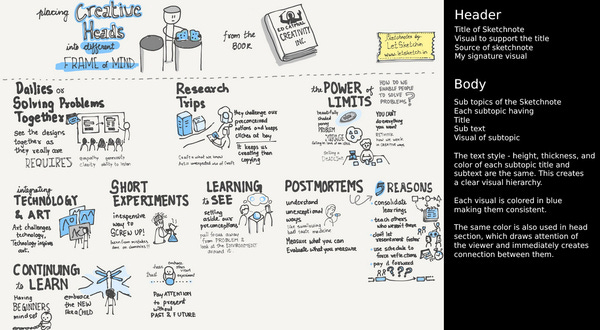 placing
Creative
Heads
into different
FRAME of MIND
from the
BOOK
ED CATMULL
CREATIVITY
INC.
Sketchnotes by:
LetSketchin
letsketch.in
Header
Title of Sketchnote
Visual to support the title
Source of sketchnote
My signature visual
Dailies or
Solving Problems
Together
see the designs
together as
they really are
REQUIRES
empathy
clarity
generosity
ability to listen
Research
Trips
They challenge our
preconceived
notions and keep
cliches at bay
It keeps us
creating than
copying
Create is what we know
the POWER of
LIMITS
HOW DO WE
ENABLE PEOPLE
TO SOLVE
PROBLEMS?
Beautifully
shaded
penny
PROBLEM
YOU CAN'T
do everything
you want
RETHINK
how we work
Body
Sub topics of the Sketchnote
Each subtopic having
Title
Sub text
Visual of subtopic
The text style - height, thickness, and
color of each subtopic title and
subtext are the same. This creates
a clear visual hierarchy.
Each visual is colored in blue
making them consistent.
The same color is also used in head
section, which draws attention of
the viewer and immediately creates
connection between them.
integrating
TECHNOLOGY
& ART
Art challenges
technology,
Technology inspires
art.
SHORT
EXPERIMENTS
inexpensive
way to
SCREW UP!
LEARNING
to SEE
setting
aside our
preconceptions
pull focus away
from PROBLEM &
look at the ENVIRONMENT
around it
POSTMORTEMS
understand
unexceptional
ways
Measure what you can
Evaluate what you measure
5 REASONS
consolidate
learnings
teach others
who weren't there
don't let
resentment fester
use schedule
to force reflections
pay it forward
CONTINUING
to LEARN
Having
BEGINNERS
mindset
embrace
the NEW
like a CHILD
Pay ATTENTION
to PRESENT
without
PAST & FUTURE